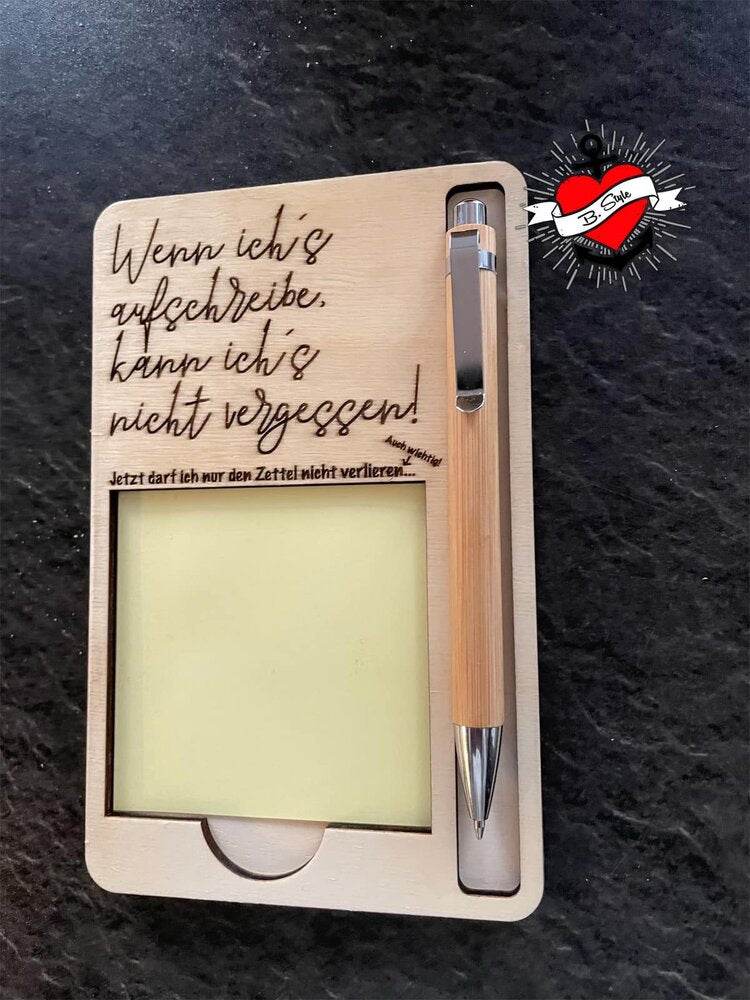 Wenn ich´s
aufschreibe,
kann ich´s
nicht vergessen!
Auch wichtig!
Jetzt darf ich nur den Zettel nicht verlieren...
B. Style